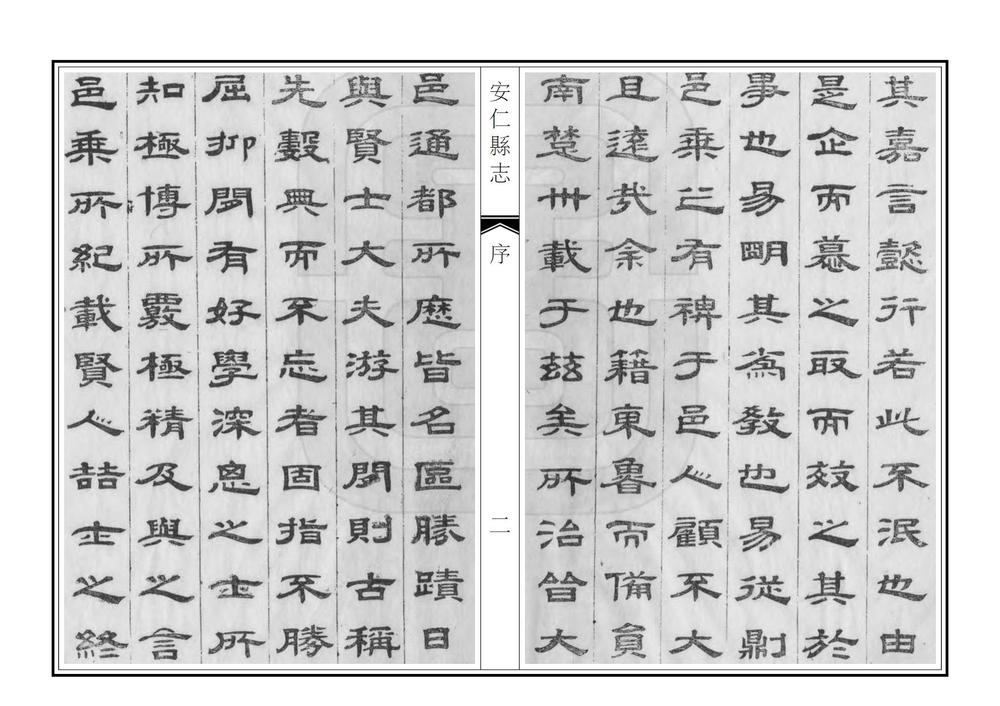 其嘉言懿行若此不泯也由
是企而慕之取而效之其於
事也易眀其為敎也易從則
邑乗之有裨于邑人顧不大
且遠哉余也籍東魯而備員
南楚卅載于茲矣所治皆大
安仁縣志
序
二
邑通都所歷皆名區勝蹟日
與賢士大夫游其間則古稱
先數典而不忘者固指不勝
屈抑間有好學深思之士所
知極博所覈極精及與之言
邑乗所紀載賢人喆士之終